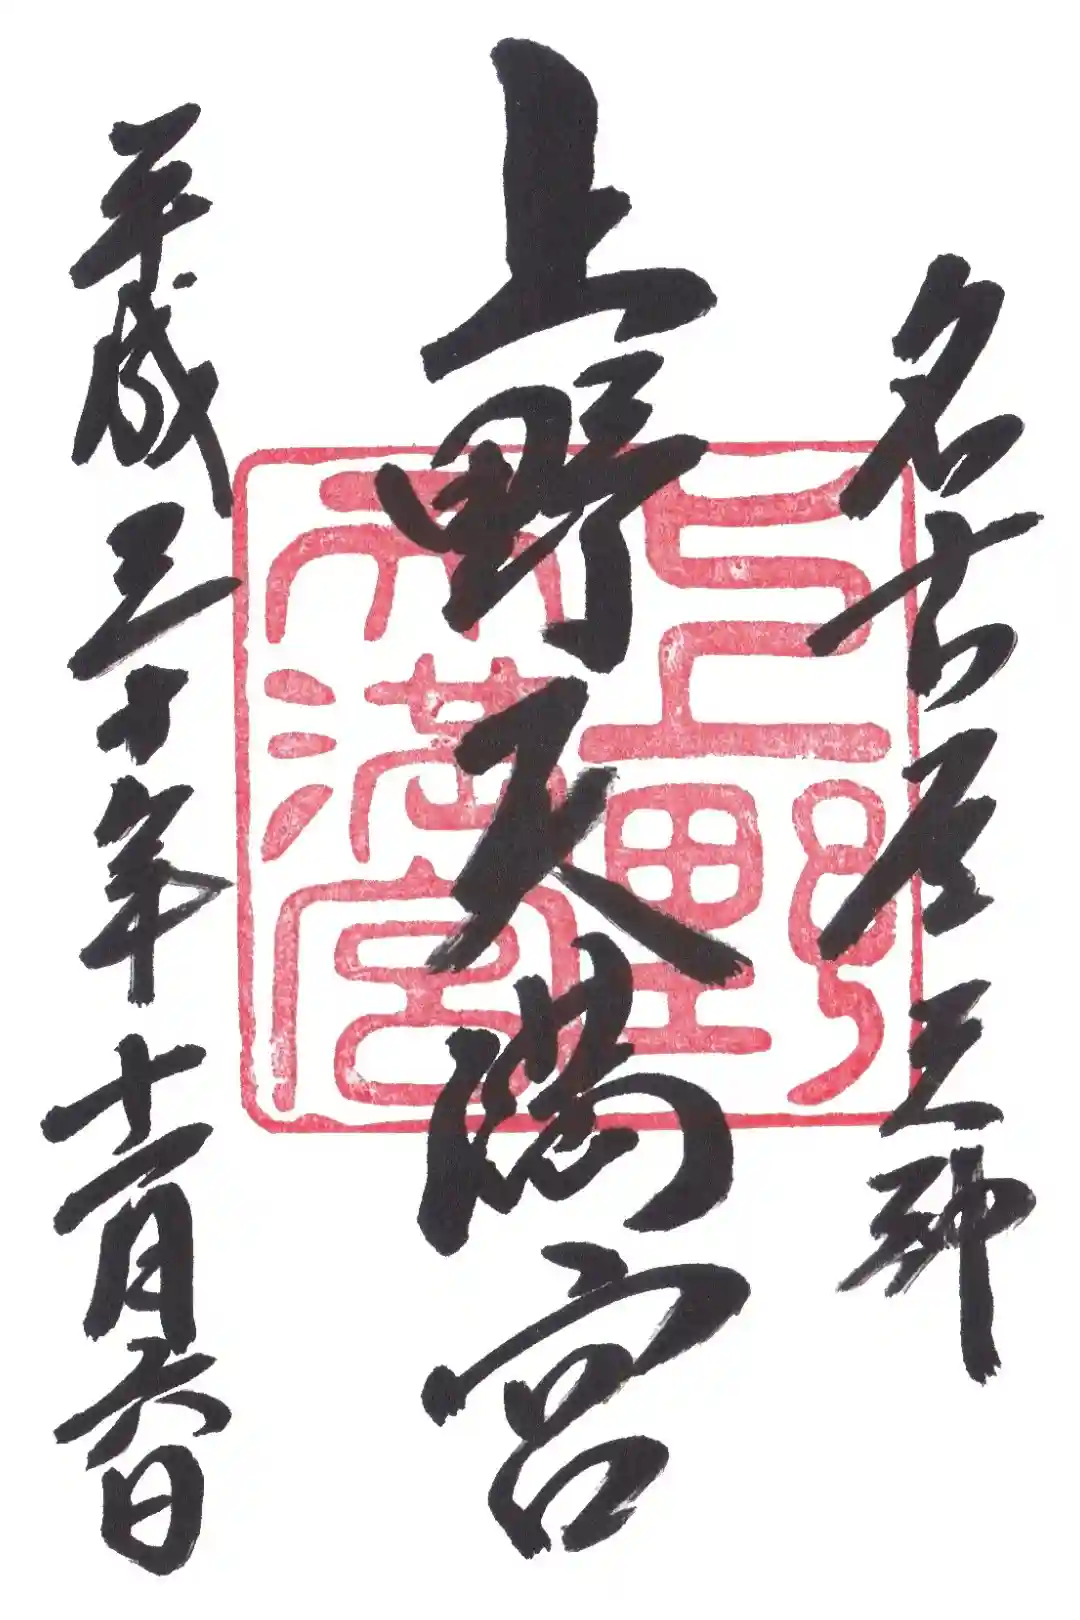 名古屋三天神
上野天満宮
上野天満宮
平成三十年十一月六日